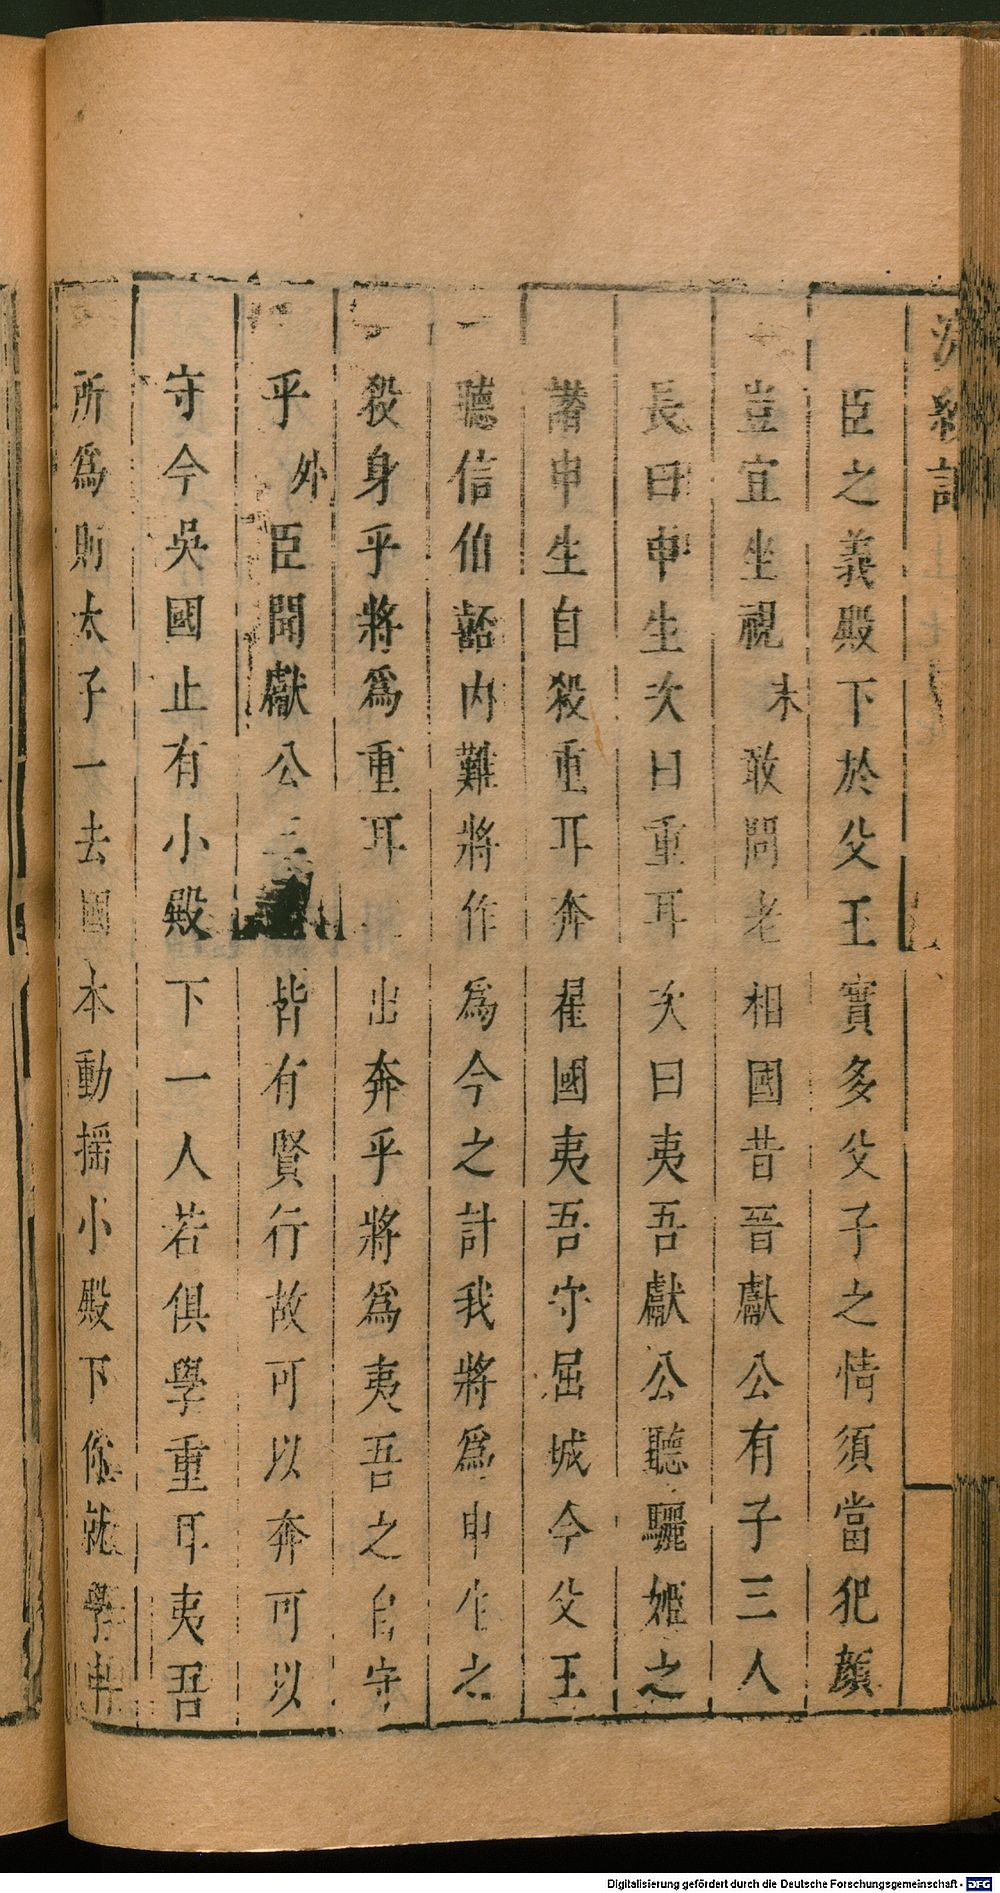 浣紗記
臣之義殿下於父王實多父子之情須當犯顏
豈宜坐視末敢問老相國昔晉獻公有子三人
長曰申生次曰重耳次曰夷吾獻公聽驪姬之
譖申生自殺重耳奔翟國夷吾守屈城今父王
聽信伯嚭內難將作為今之計我將為申生之
殺身乎將爲重耳出奔乎將爲夷吾之自守
乎外臣聞獻公三皆有賢行故可以奔可以
守今吳國止有小殿下一人若俱學重耳夷吾
所爲則太子一去國本動搖小殿下你就學申
Digitalisierung gefördert durch die Deutsche Forschungsgemeinschaft - DFG